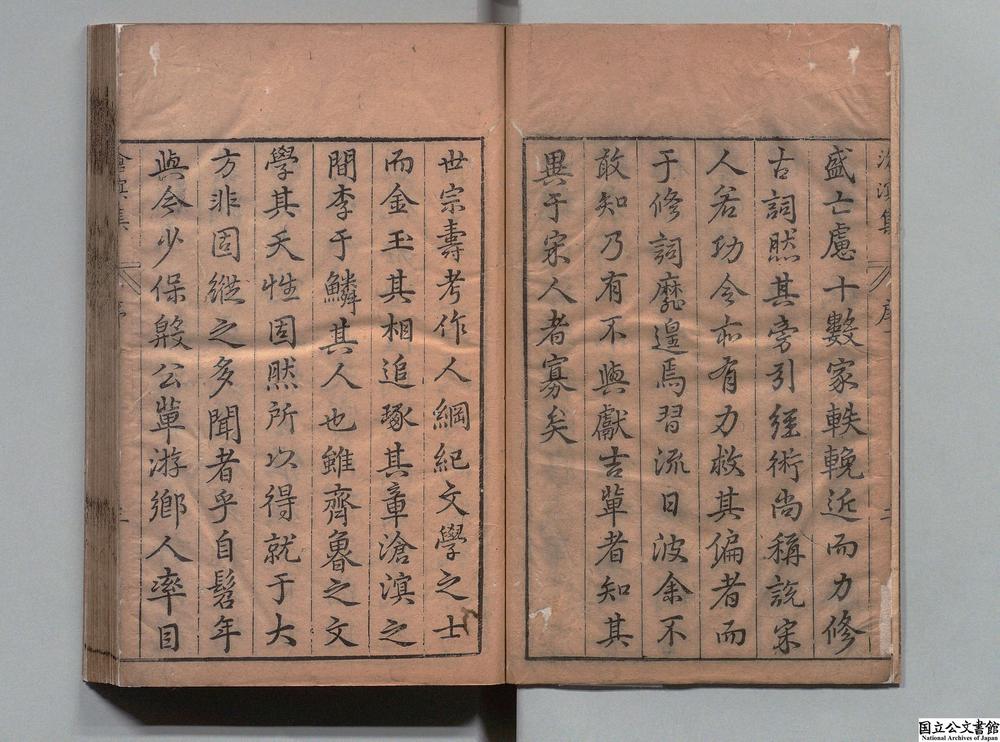 盛亡慮十數家軼輓近而力修
古詞然其旁引經術尚稱說宋
人若功令亦有力救其偏者而
于修詞靡遑焉習流日波余不
敢知乃有不與獻吉輩者知其
異于宋人者寡矣
世宗壽考作人綱紀文學之士
而金玉其相追琢其章滄溟之
間李于鱗其人也雖齊魯之文
學其天性固然所以得就于大
方非固縱之多聞者乎自髫年
與今少保殷公輩游鄉人率目
国立公文書館
National Archives of Japan